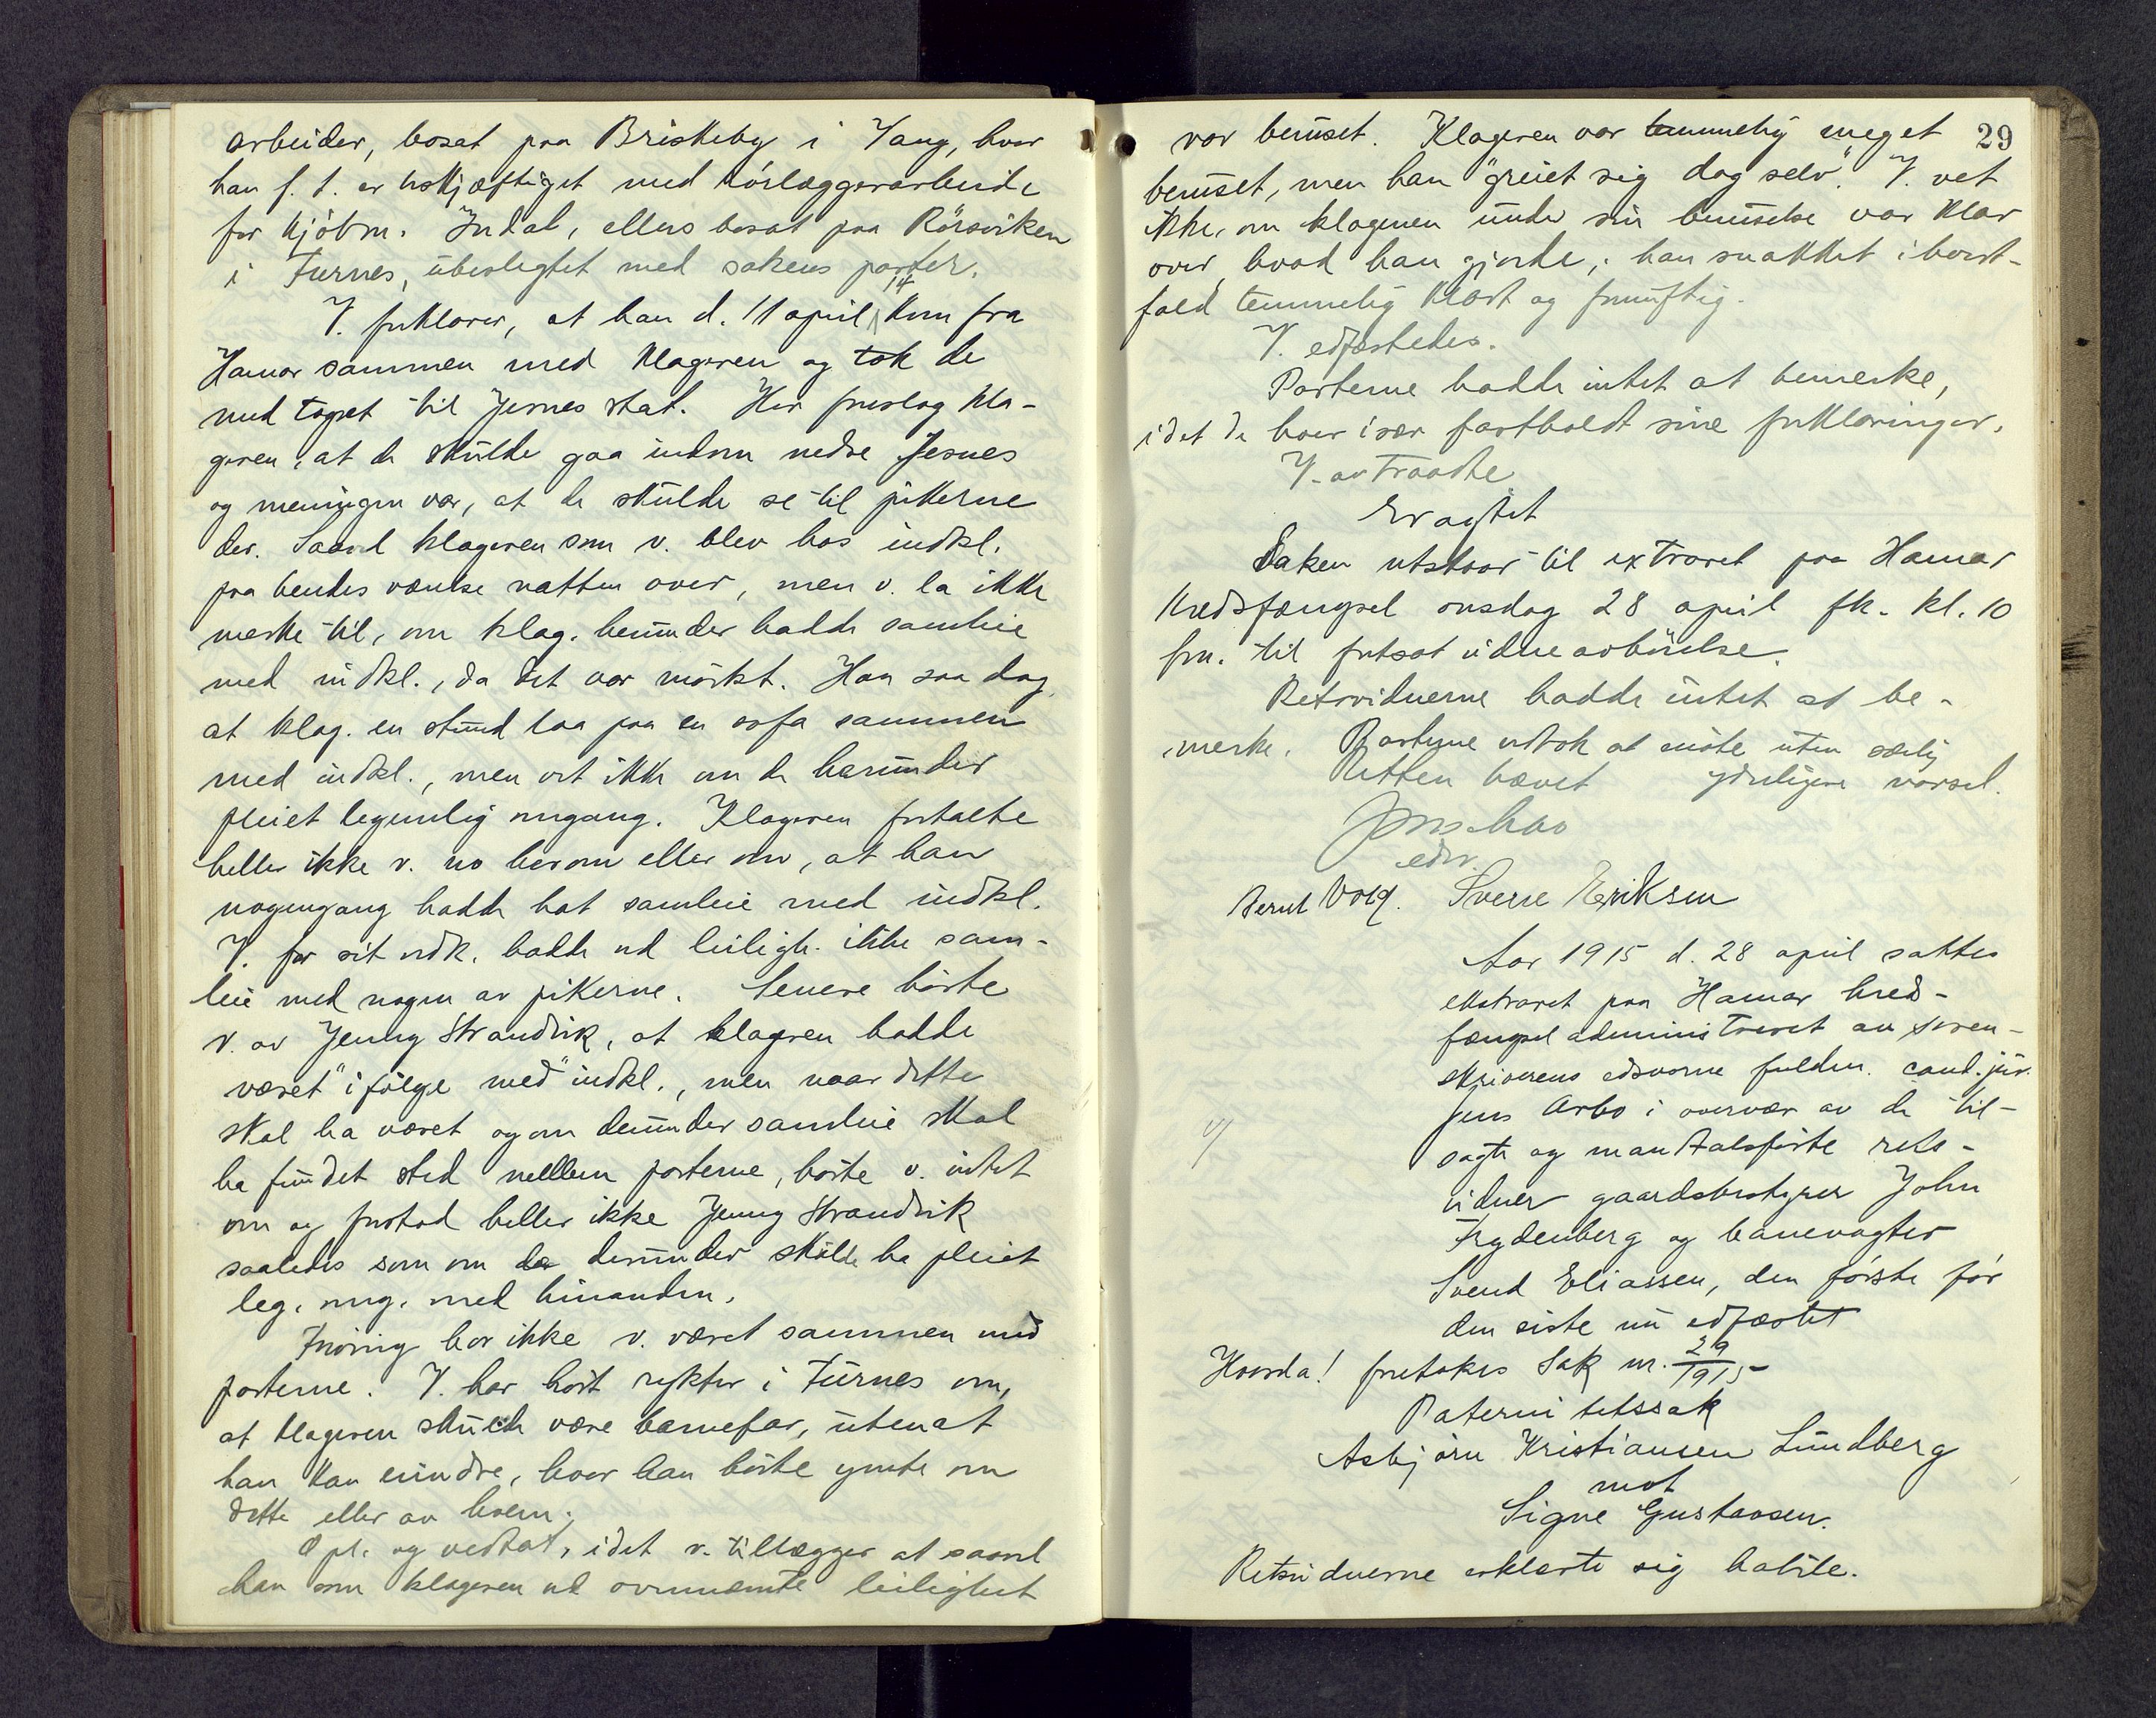 arbeider, bosat paa Briskeby i Vang, hvor
han f. t. er beskjæftiget med rörlæggerarbeide
for kjöbm. Indal, ellers bosat paa Rörsviken
i Furnes, ubeslegtet med sakens parter.
V. forklarer, at han d. 11 april 14 kom fra
Hamar sammen med klageren og tok de
med toget til Jesnes stat. Her foreslog kla-
geren, at de skulde gaa indom nedre Jesnes
og meningen var, at de skulde se til pikerne
der. Saavel klageren som v. blev hos indkl.
paa hendes værelse natten over, men v. la ikke
merke til, om klag. herunder hadde samleie
med indkl., da det var mörkt. Han saa dog
at klag. en stund laa paa en sofa sammen
med indkl., men vet ikke om de herunder
pleiet legemlig omgang. Klageren fortalte
heller ikke v. no herom eller om, at han
nogengang hadde hat samleie med indkl.
V. for sit vedk. hadde ved leiligh. ikke sam-
leie med nogen av pikerne. Senere hörte
v. av Jenny Strandvik, at klageren hadde
været "i fölge med" indkl., men naar dette
skal ha været og om derunder samleie skal
ha fundet sted mellem parterne, hörte v. intet
om og forstod heller ikke Jenny Strandvik
saaledes som om de derunder skulde ha pleiet
leg. omg. med hinanden.
Forövrig har ikke v. været sammen med
parterne. V. har hört rykter i Furnes om,
at klageren skulde være barnefar, uten at
han kan erindre, hvor han hörte ymte om
dette eller av hvem.
Opl. og vedtat, idet v. tillægger at saavel
han som klageren ved ovennævnte leilighet
29
var beruset. Klageren var temmelig meget
beruset, men han "greiet sig dog selv". V. vet
ikke, om klageren under sin beruselse var klar
over, hvad han gjorde; han snakket i hvert-
fald temmelig klart og fornuftig.
V. edfæstedes.
Parterne hadde intet at bemerke,
idet de hver især fastholdt sine forklaringer.
V. avtraadte
Eragtet
Saken utstaar til extraret paa Hamar
Kredsfængsel onsdag 28 april fk. kl. 10
fm. til fortsat vidneavhörelse.
Retsvidnerne hadde intet at be-
merke. Parterne vedtok at möte uten særlig
Retten hævet ytterligere varsel.
Jens Arbo
edsv.
Bernt Volg. Sverre Eriksen
Aar 1915 d. 28 april sattes
ekstraret paa Hamar kreds-
fængsel administreret av soren-
skriverens edsvorne fuldm. cand. jur.
Jens Arbo i overvær av de til-
sagte og mandtalsförte rets-
vidner gaardsbestyrer John
Frydenberg og banevogter
Svend Eliassen, den förste för
den siste nu edfæstet
Hvorda! foretokes Sak nr. 29/1915
Paternitetssak
Asbjörn Kristiansen Lundberg
mot
Signe Gustavsen.
Retsvidnerne erklærte sig habile.